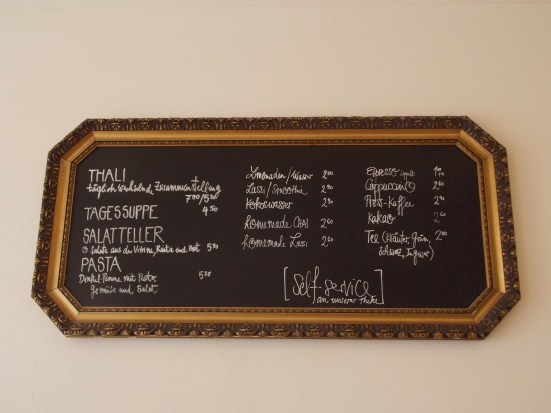 THALI
täglich wechselnde Zusammenstellung
7.00/5.00
TAGESSUPPE 4.50
SALATTELLER
3 Salate aus der Vitrine, Pasta und Brot 5.50
PASTA
Dinkel-Penne mit Pesto, 5.50
Gemüse und Salat
Limonaden/Wasser 2.00
Lassi/Smoothie 2.90
Kokoswasser 2.90
homemade CHAI 2.60
homemade Lassi 2.60
Espresso
Cappuccino 2.60
Press-Kaffee 2.90
Kakao 2.60
Tee (Kräuter, Grün, 2.00
Schwarz, Ingwer)
[Self-service
an unserer Theke]